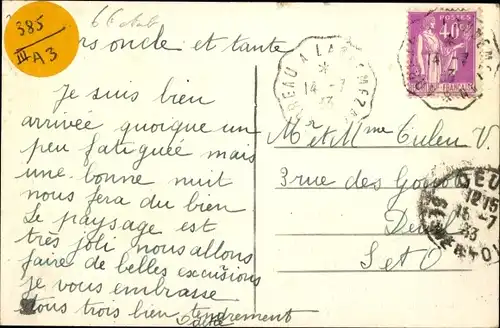 385
III
A3
oncle et tante
Je suis bien
arrivée quoique un
peu fatiguée mais
une bonne nuit
nous fera du bien
Le paysage est
très joli nous allons
faire de belles excusions
je vous embrasse
tous trois bien tendrement
POSTES
40
14 - 7
33
Mr et Mme V.
3 rue des
S et O
12 15
33